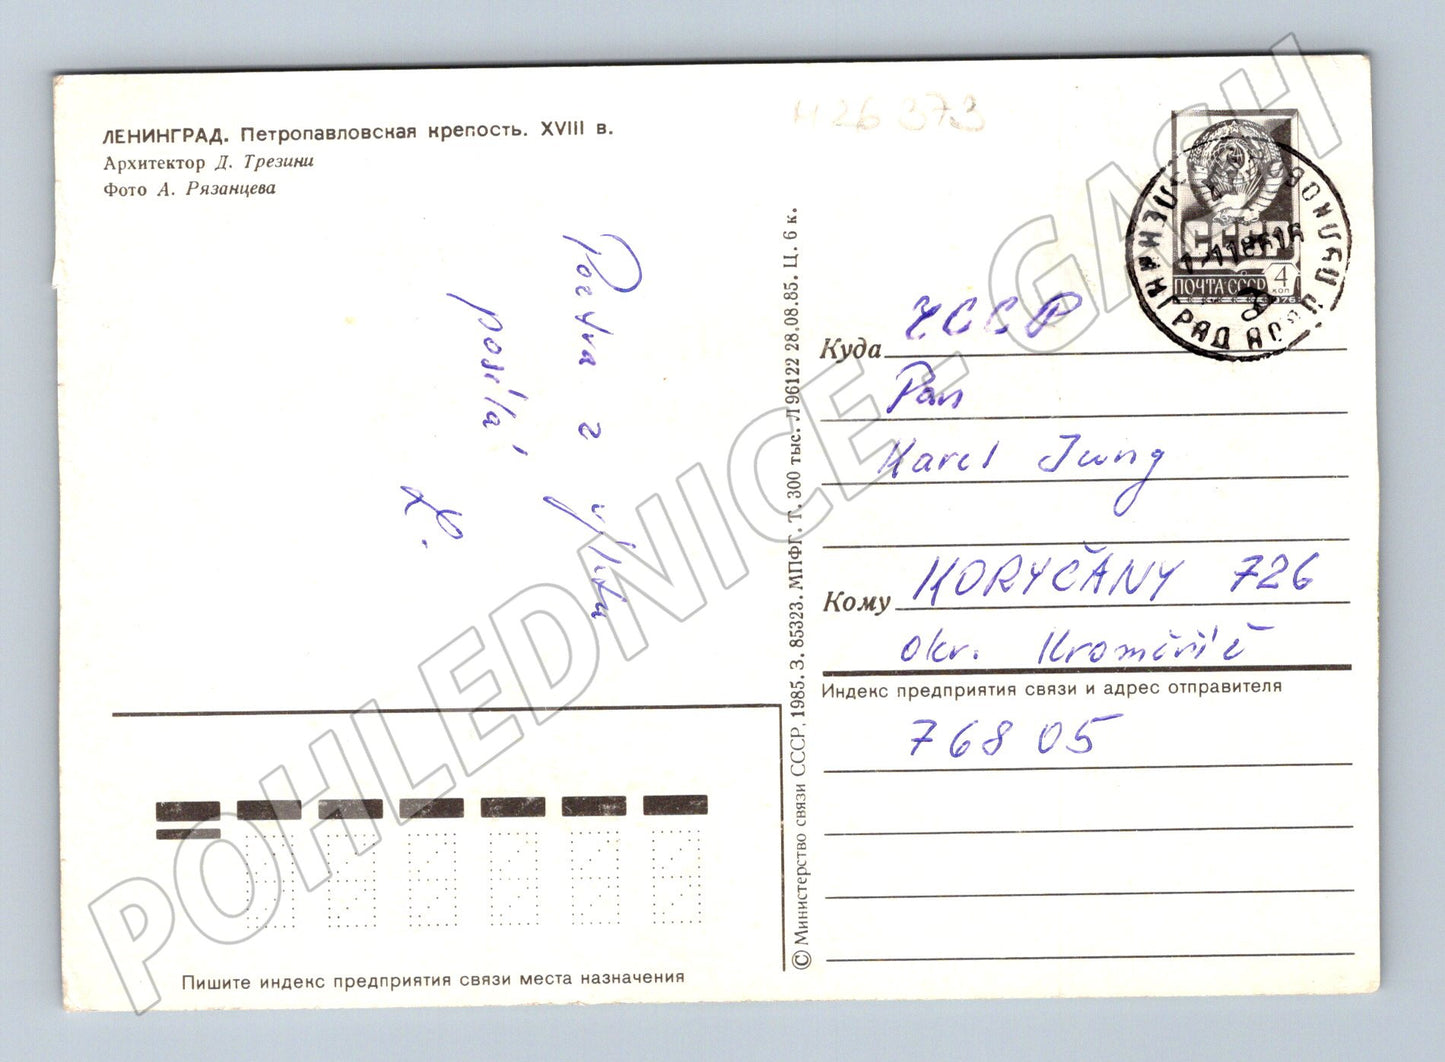 ЛЕНИНГРАД. Петропавловская крепость. XVIII в.
Архитектор Д. Трезини
Фото А. Рязанцева
Н26 373
СССР
ПОЧТА СССР 4
КОП
Куда ЧССР
Pan
Karel Jung
Кому KORYČANY 726
okr. Kroměříž
Индекс предприятия связи и адрес отправителя
768 05
z
L.
© Министерство связи СССР, 1985. З. 85323. МПФГ. Т. 300 тыс. Л 96122 28.08.85. Ц. 6 к.
Пишите индекс предприятия связи места назначения
POHLEDNICE - GASH